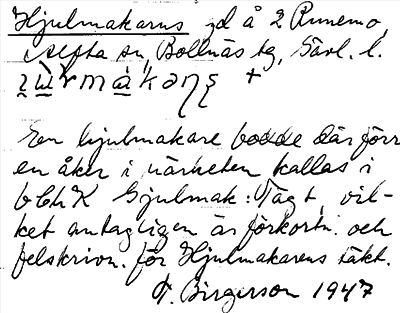 Hjulmakarns gd å 2 Runemo,
Alfta sn, Bollnäs tg, Gävl. l.
+
En hjulmakare bodde där förr
en åker i närheten kallas i
bChK Hjulmak: Tägt, vil-
ket antagligen är förkortn. och
felskrivn. för Hjulmakarens täkt.
F. Birgerson 1947